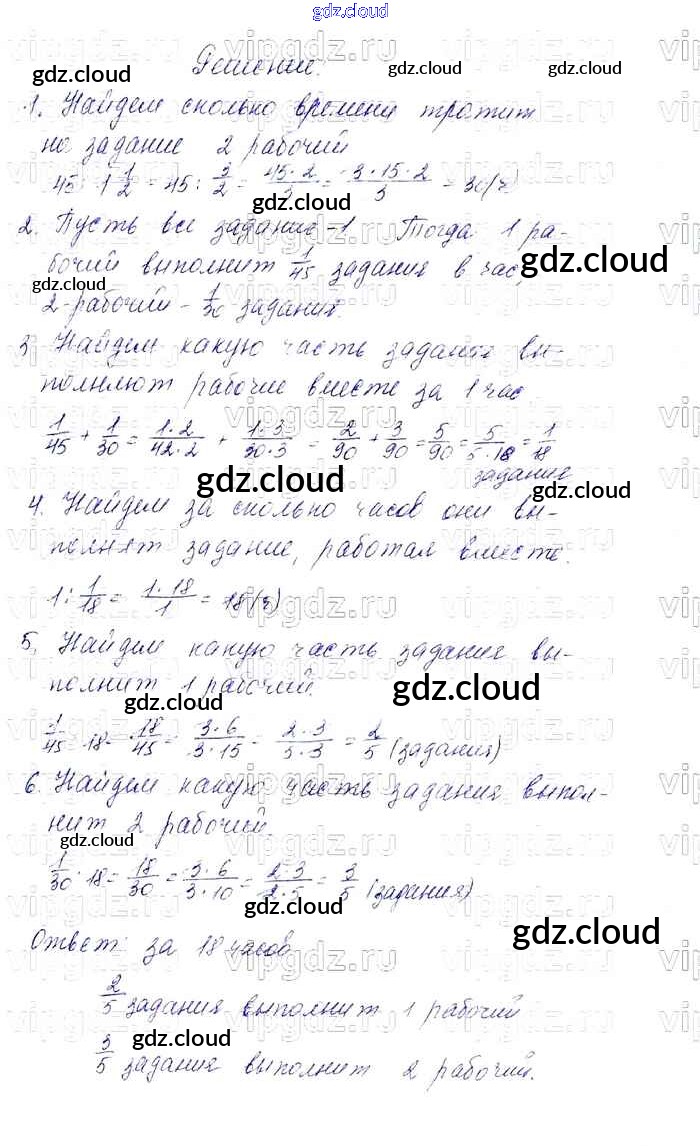 gdz.cloud
Решение.
1. Найдем сколько времени тратит
на задание 2 рабочий
45 : 1 1/2 = 45 : 3/2 = 45·2/3 = 3·15·2/3 = 30(ч)
2. Пусть все задание – 1. Тогда 1 ра-
бочий выполнит 1/45 задания в час,
2-рабочий – 1/30 задания.
3 Найдем какую часть задания вы-
полняют рабочие вместе за 1 час.
1/45 + 1/30 = 1·2/42·2 + 1·3/30·3 = 2/90 + 3/90 = 5/90 = 5/5·18 = 1/18
задания
4. Найдем за сколько часов они вы-
полнят задание, работая вместе.
1 : 1/18 = 1·18/1 = 18(ч)
5. Найдем какую часть задания вы-
полнит 1 рабочий.
1/45 · 18 = 18/45 = 3·6/3·15 = 2·3/5·3 = 2/5 (задания)
6. Найдем какую часть задания выпол-
нит 2 рабочий.
1/30 · 18 = 18/30 = 3·6/3·10 = 2·3/2·5 = 3/5 (задания)
Ответ: за 18 часов
2/5 задания выполнит 1 рабочий
3/5 задания выполнит 2 рабочий.